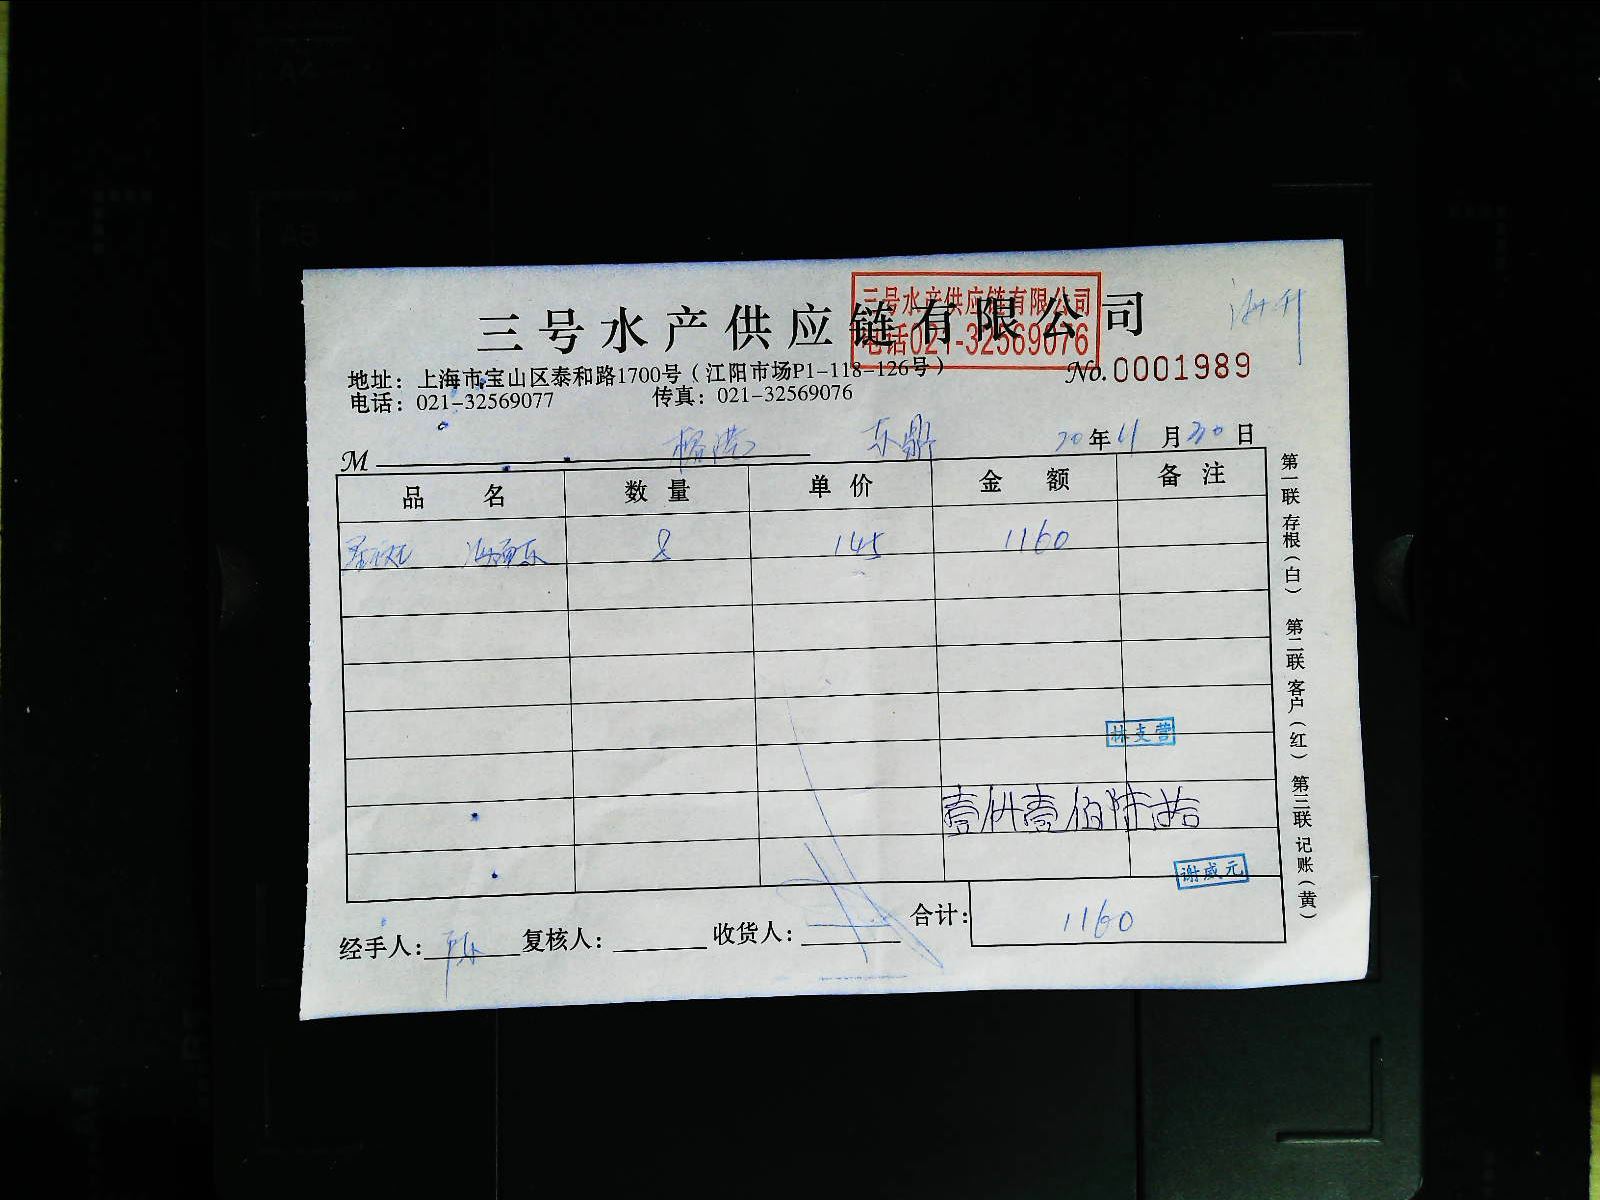 三号水产供应链有限公司
三号水产供应链有限公司
电话021-32569076
地址：上海市宝山区泰和路1700号（江阳市场P1-118-126号）
No.0001989
电话：021-32569077 传真：021-32569076
M 东鼎 20年11月30日
品名 数量 单价 金额 备注
8 145 1160
林支营
壹仟壹佰陆拾
谢威元
合计：1160
经手人： 复核人： 收货人：
第一联 存根（白） 第二联 客户（红） 第三联 记账（黄）